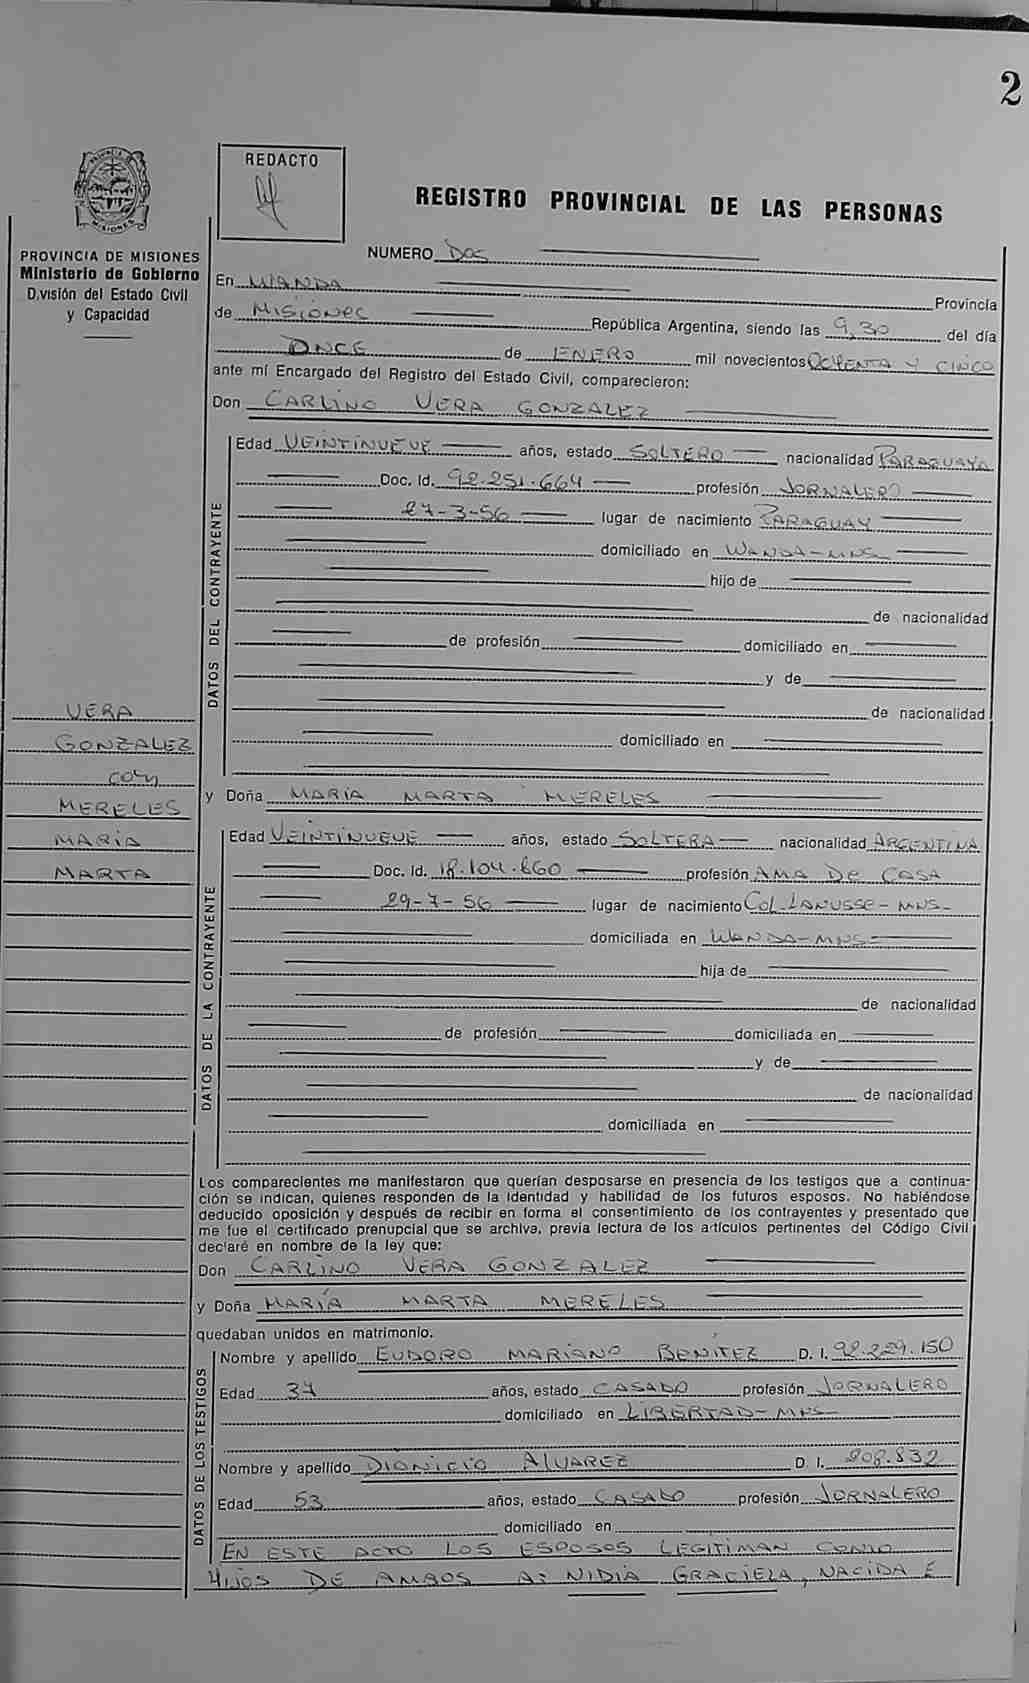 2
REDACTO
REGISTRO PROVINCIAL DE LAS PERSONAS
PROVINCIA DE MISIONES
Ministerio de Gobierno
División del Estado Civil
y Capacidad
NUMERO DOS
En WANDA Provincia
de MISIONES República Argentina, siendo las 9,30 del día
ONCE de ENERO mil novecientos OCHENTA Y CINCO
ante mí Encargado del Registro del Estado Civil, comparecieron:
Don CARLINO VERA GONZALEZ
DATOS DEL CONTRAYENTE
Edad VEINTINUEVE años, estado SOLTERO nacionalidad PARAGUAYA
Doc. Id. 92.251.664 profesión JORNALERO
27-3-56 lugar de nacimiento PARAGUAY
domiciliado en WANDA-MNS-
hijo de
de nacionalidad
de profesión domiciliado en
y de
de nacionalidad
domiciliado en
VERA
GONZALEZ
con
MERELES
MARÍA
MARTA
y Doña MARÍA MARTA MERELES
DATOS DE LA CONTRAYENTE
Edad VEINTINUEVE años, estado SOLTERA nacionalidad ARGENTINA
Doc. Id. 18.104.660 profesión AMA DE CASA
29-7-56 lugar de nacimiento COL-LANUSSE-MNS-
domiciliada en WANDA-MNS-
hija de
de nacionalidad
de profesión domiciliada en
y de
de nacionalidad
domiciliada en
Los comparecientes me manifestaron que querían desposarse en presencia de los testigos que a continua-
ción se indican, quienes responden de la identidad y habilidad de los futuros esposos. No habiéndose
deducido oposición y después de recibir en forma el consentimiento de los contrayentes y presentado que
me fue el certificado prenupcial que se archiva, previa lectura de los artículos pertinentes del Código Civil
declaré en nombre de la ley que:
Don CARLINO VERA GONZALEZ
y Doña MARÍA MARTA MERELES
quedaban unidos en matrimonio.
DATOS DE LOS TESTIGOS
Nombre y apellido EUDORO MARIANO BENÍTEZ D. I. 92.229.150
Edad 37 años, estado CASADO profesión JORNALERO
domiciliado en LIBERTAD-MNS-
Nombre y apellido DIONICIO ALVAREZ D. I. 208.832
Edad 53 años, estado CASADO profesión JORNALERO
domiciliado en
EN ESTE ACTO LOS ESPOSOS LEGITIMAN COMO
HIJOS DE AMBOS A: NIDIA GRACIELA, NACIDA E